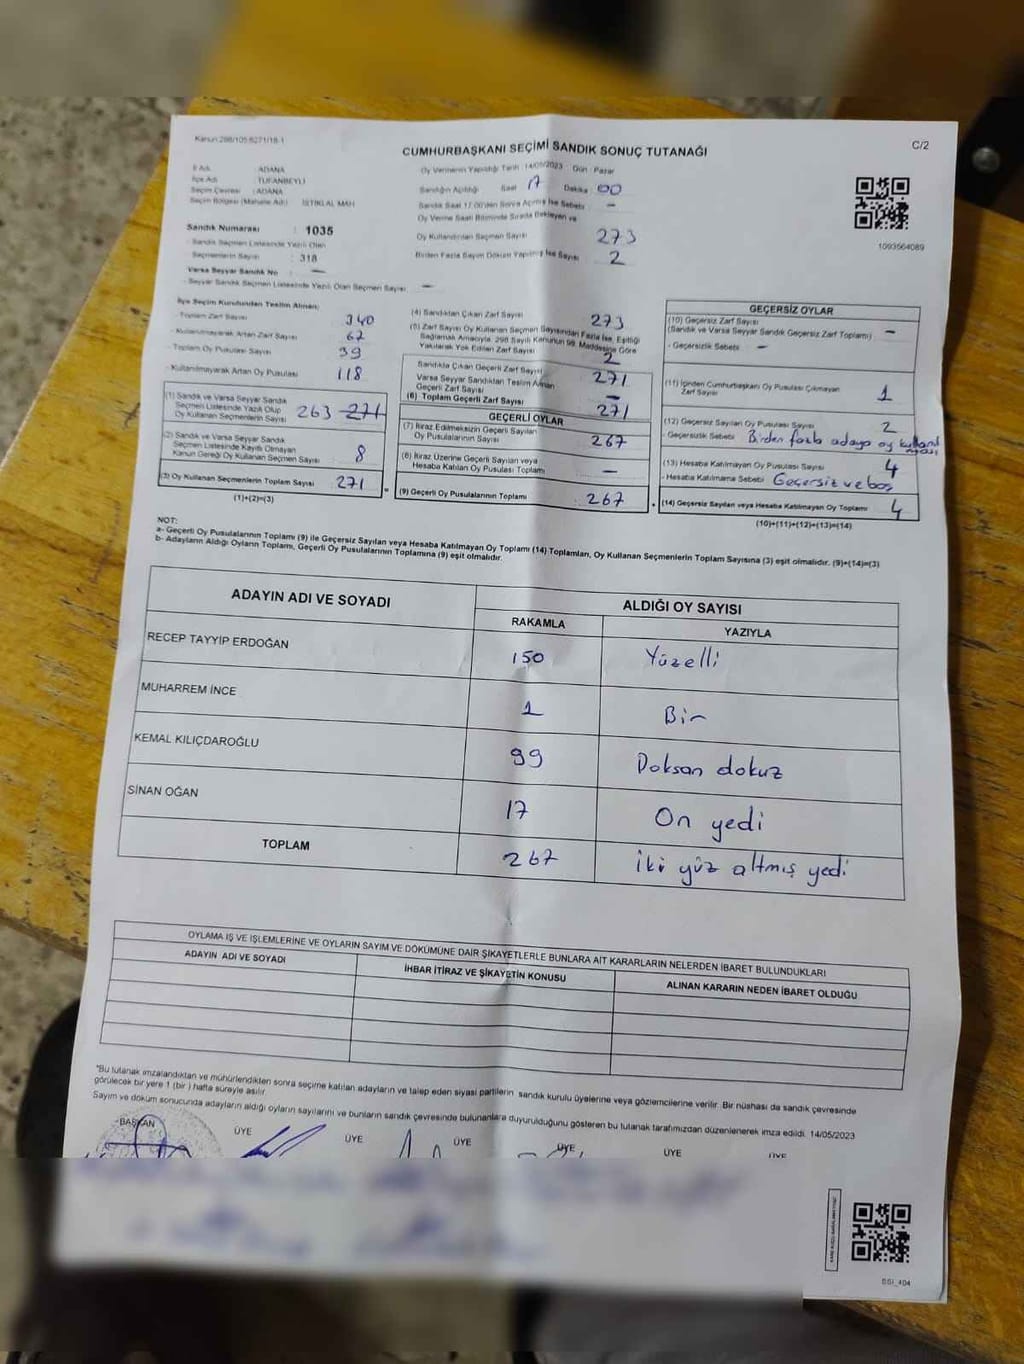 Kanun:298/105 6271/18-1
C/2
CUMHURBAŞKANI SEÇİMİ SANDIK SONUÇ TUTANAĞI
İl Adı : ADANA
İlçe Adı : TUFANBEYLİ
Seçim Çevresi : ADANA
Seçim Bölgesi (Mahalle Adı) : İSTİKLAL MAH
Sandık Numarası : 1035
- Sandık Seçmen Listesinde Yazılı Olan
Seçmenlerin Sayısı : 318
Varsa Seyyar Sandık No : —
- Seyyar Sandık Seçmen Listesinde Yazılı Olan Seçmen Sayısı : —
Oy Vermenin Yapıldığı Tarih : 14/05/2023 Gün : Pazar
Sandığın Açıldığı Saat 17 Dakika : 00
Sandık Saat 17.00'den Sonra Açılmış İse Sebebi : —
Oy Verme Saati Bitiminde Sırada Bekleyen ve
Oy Kullandırılan Seçmen Sayısı : 273
Birden Fazla Sayım Döküm Yapılmış İse Sayısı : 2
1093564089
İlçe Seçim Kurulundan Teslim Alınan:
- Toplam Zarf Sayısı : 340
- Kullanılmayarak Artan Zarf Sayısı : 67
- Toplam Oy Pusulası Sayısı : 39
- Kullanılmayarak Artan Oy Pusulası : 118
(1) Sandık ve Varsa Seyyar Sandık
Seçmen Listesinde Yazılı Olup
Oy Kullanan Seçmenlerin Sayısı : 263 271
(2) Sandık ve Varsa Seyyar Sandık
Seçmen Listesinde Kayıtlı Olmayan
Kanun Gereği Oy Kullanan Seçmen Sayısı : 8
(3) Oy Kullanan Seçmenlerin Toplam Sayısı : 271
(1)+(2)=(3)
(4) Sandıktan Çıkan Zarf Sayısı : 273
(5) Zarf Sayısı Oy Kullanan Seçmen Sayısından Fazla İse, Eşitliği
Sağlamak Amacıyla, 298 Sayılı Kanunun 98. Maddesine Göre
Yakılarak Yok Edilen Zarf Sayısı : 2
Sandıkta Çıkan Geçerli Zarf Sayısı : 271
Varsa Seyyar Sandıktan Teslim Alınan
Geçerli Zarf Sayısı : —
(6) Toplam Geçerli Zarf Sayısı : 271
GEÇERLİ OYLAR
(7) İtiraz Edilmeksizin Geçerli Sayılan
Oy Pusulalarının Sayısı : 267
(8) İtiraz Üzerine Geçerli Sayılan veya
Hesaba Katılan Oy Pusulası Toplamı : —
(9) Geçerli Oy Pusulalarının Toplamı : 267
GEÇERSİZ OYLAR
(10) Geçersiz Zarf Sayısı
(Sandık ve Varsa Seyyar Sandık Geçersiz Zarf Toplamı) : —
- Geçersizlik Sebebi : —
(11) İçinden Cumhurbaşkanı Oy Pusulası Çıkmayan
Zarf Sayısı : 1
(12) Geçersiz Sayılan Oy Pusulası Sayısı : 2
- Geçersizlik Sebebi : Birden fazla adaya oy kullanılması
(13) Hesaba Katılmayan Oy Pusulası Sayısı : 4
- Hesaba Katılmama Sebebi : Geçersiz ve boş
(14) Geçersiz Sayılan veya Hesaba Katılmayan Oy Toplamı : 4
(10)+(11)+(12)+(13)=(14)
NOT:
a- Geçerli Oy Pusulalarının Toplamı (9) ile Geçersiz Sayılan veya Hesaba Katılmayan Oy Toplamı (14) Toplamları, Oy Kullanan Seçmenlerin Toplam Sayısına (3) eşit olmalıdır. (9)+(14)=(3)
b- Adayların Aldığı Oyların Toplamı, Geçerli Oy Pusulalarının Toplamına (9) eşit olmalıdır.
ADAYIN ADI VE SOYADI
ALDIĞI OY SAYISI
RAKAMLA
YAZIYLA
RECEP TAYYİP ERDOĞAN 150 Yüzelli
MUHARREM İNCE 1 Bir
KEMAL KILIÇDAROĞLU 99 Doksan dokuz
SİNAN OĞAN 17 On yedi
TOPLAM 267 iki yüz altmış yedi
OYLAMA İŞ VE İŞLEMLERİNE VE OYLARIN SAYIM VE DÖKÜMÜNE DAİR ŞİKAYETLERLE BUNLARA AİT KARARLARIN NELERDEN İBARET BULUNDUKLARI
ADAYIN ADI VE SOYADI
İHBAR İTİRAZ VE ŞİKAYETİN KONUSU
ALINAN KARARIN NEDEN İBARET OLDUĞU
"Bu tutanak imzalandıktan ve mühürlendikten sonra seçime katılan adayların ve talep eden siyasi partilerin sandık kurulu üyelerine veya gözlemcilerine verilir. Bir nüshası da sandık çevresinde
görülecek bir yere 1 (bir ) hafta süreyle asılır.
Sayım ve döküm sonucunda adayların aldığı oyların sayılarını ve bunların sandık çevresinde bulunanlara duyurulduğunu gösteren bu tutanak tarafımızdan düzenlenerek imza edildi. 14/05/2023
BAŞKAN ÜYE ÜYE ÜYE ÜYE ÜYE ÜYE
SSI_404